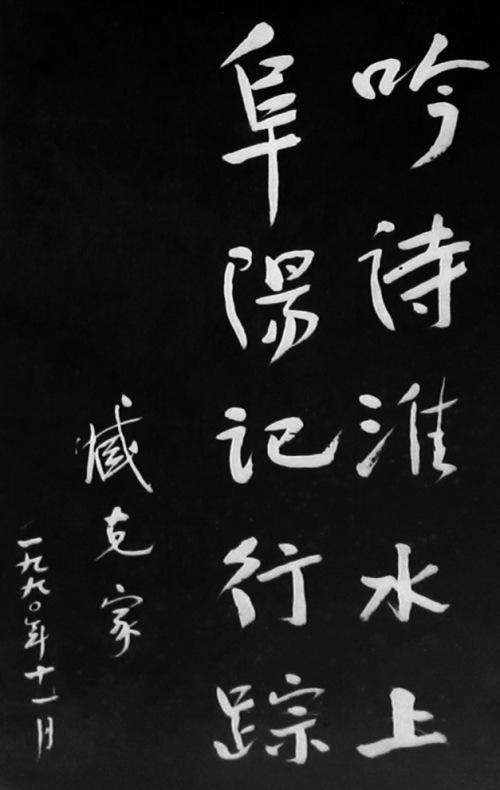 吟诗淮水上
阜陽记行踪
臧克家
一九九〇年十一月